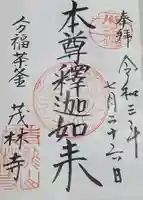 奉拝
令和三年
七月二十六日
本尊釋迦如来
分福茶釜
茂林寺